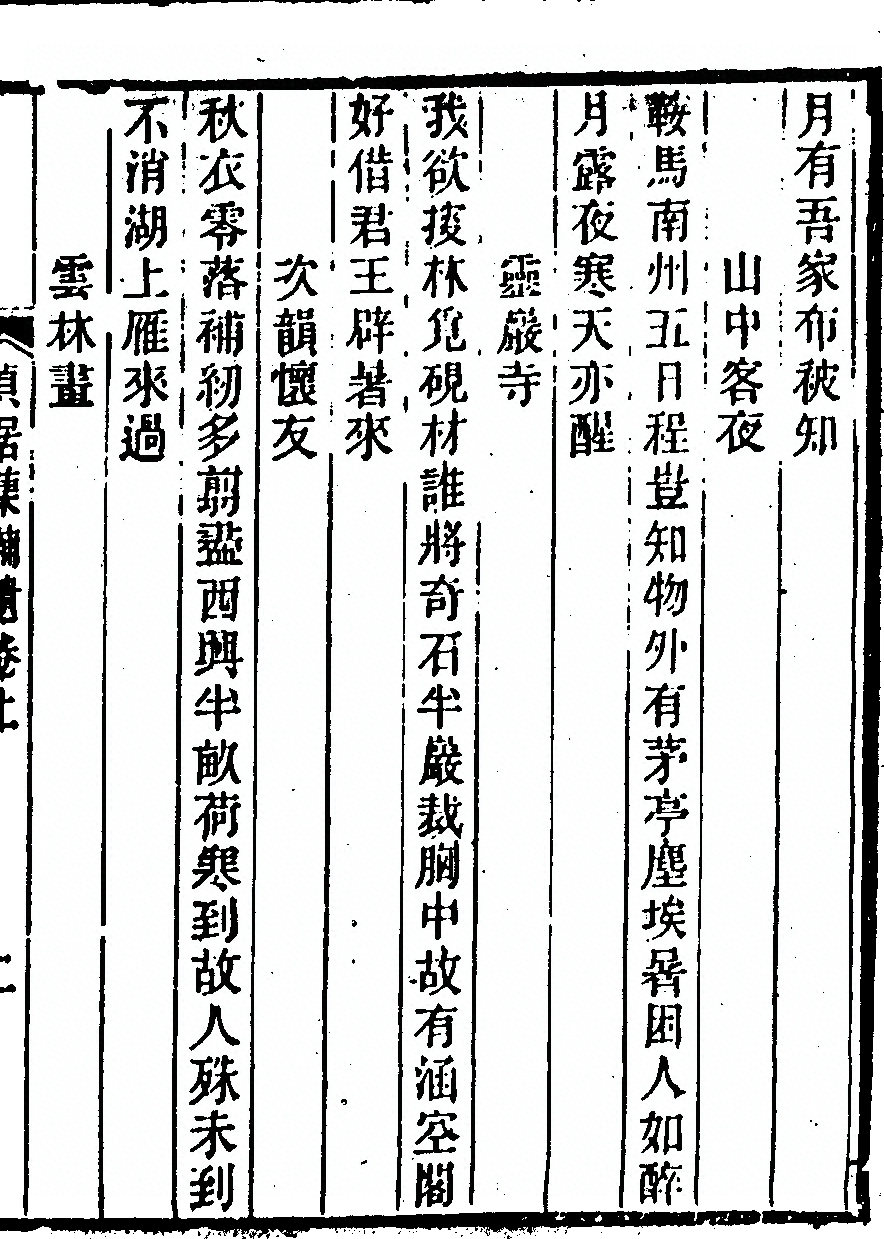 月有吾家布被知
山中客夜
鞍馬南州五日程豈知物外有茅亭塵埃暑困人如醉
月露夜寒天亦醒
靈巖寺
我欲披林覓硯材誰將奇石半巖裁胸中故有涵空閣
好借君王辟著來
次韻懷友
秋衣零落補紉多剪盡西興半畝荷寒到故人殊未到
不消湖上雁來過
雲林畫
貞居集補遺卷上
二